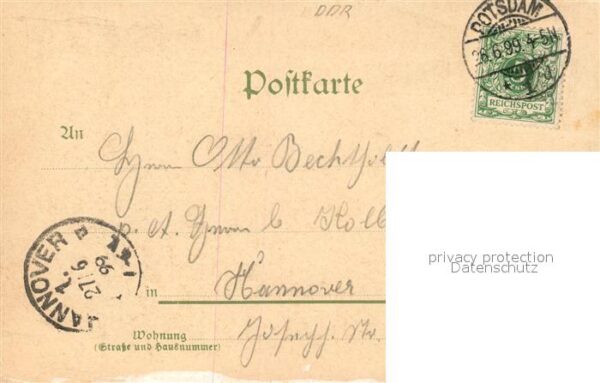 DDR
POTSDAM
26.6.99. 4-5N
d
REICHSPOST
Postkarte
An
Herrn Otto Bechthold
p. A. Herrn
in Hannover
Wohnung
(Straße und Hausnummer)
Joseph. Str.
HANNOVER
1.
27/6
99
privacy protection
Datenschutz